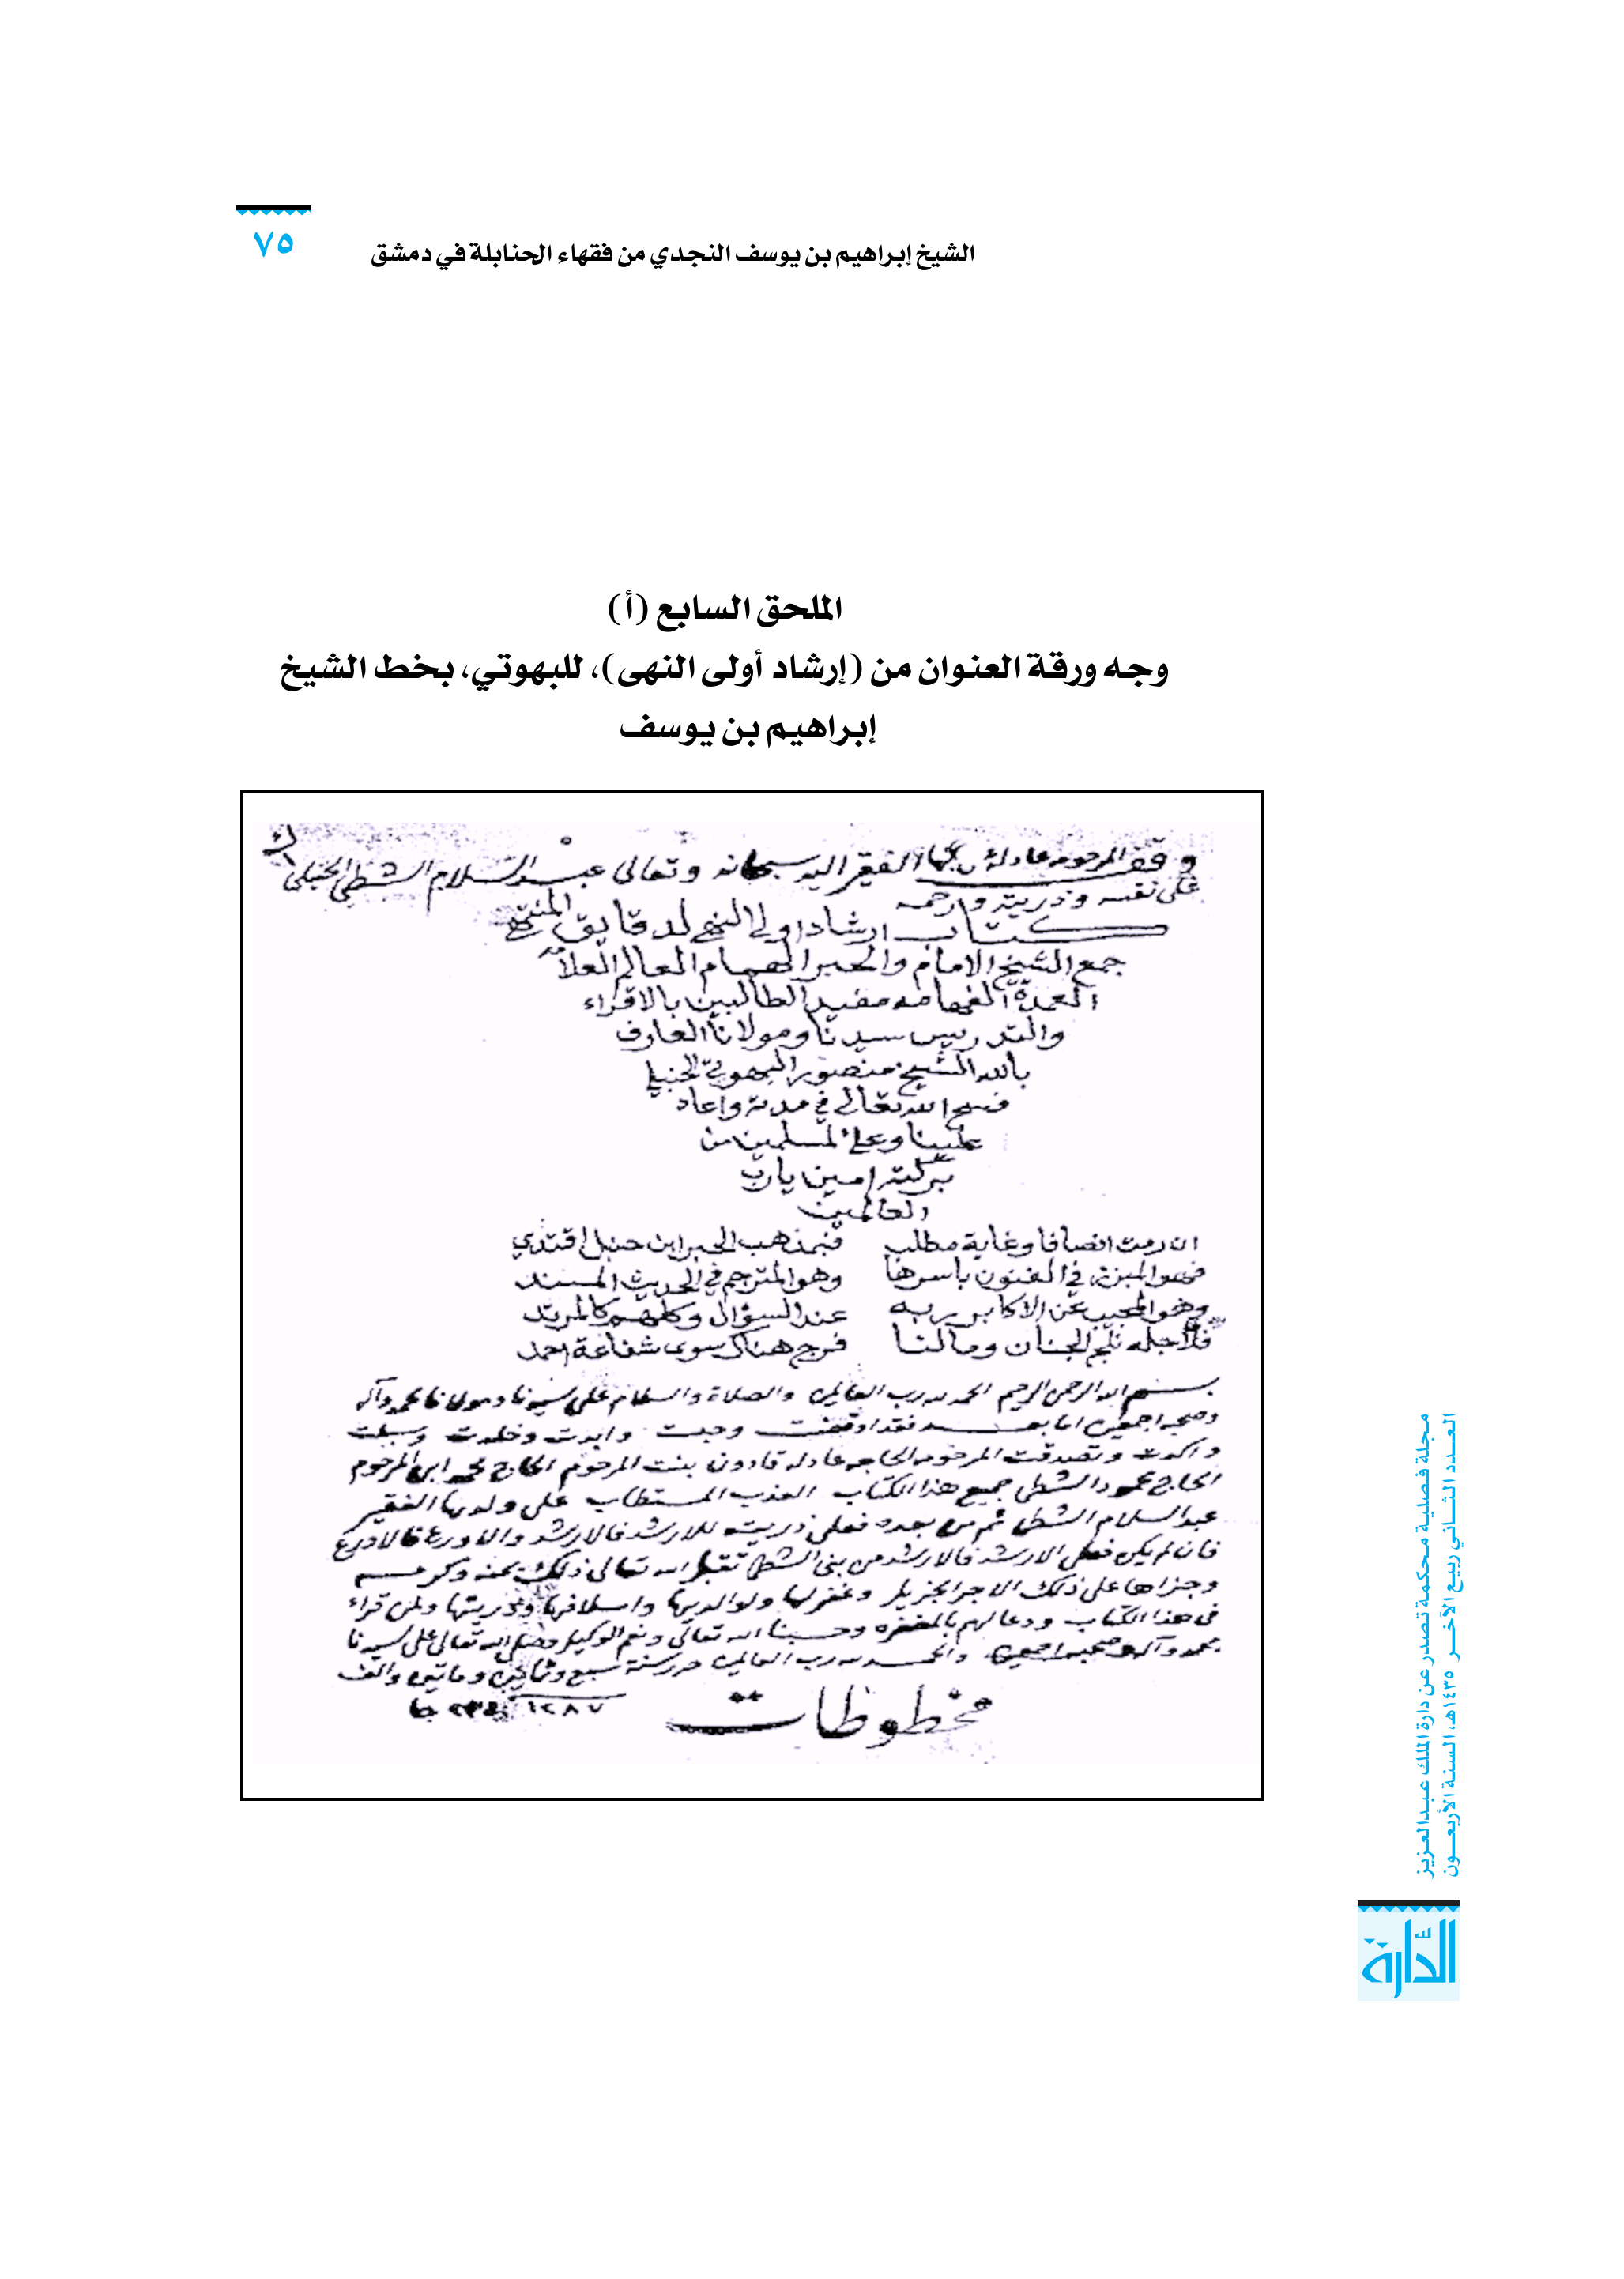 الشيخ إبراهيم بن يوسف النجدي من فقهاء الحنابلة في دمشق
٧٥
الملحق السابع (أ)
وجه ورقة العنوان من (إرشاد أولى النهى)، للبهوتي، بخط الشيخ
إبراهيم بن يوسف
وقف المرحومه عادلة الفقير اليه سبحانه وتعالى عبد السلام الشطي الحنبلي
على نفسه وذريته وارحمه
كتاب ارشاد اولي النهى لدقايق المنتهى
جمع الشيخ الامام والحبر الهمام العالم العلامه
العمدة الفهامه مفيد الطالبين بالاقراء
والتدريس سيدنا ومولانا العارف
بالله الشيخ منصور البهوتي الحنبلي
فسح الله تعالى في مدته واعاد
علينا وعلى المسلمين من
بركته امين يارب
العالمين
ان رمت انصافا وغاية مطلب فبمذهب الحبر ابن حنبل اقتدي
فهو المبرز في الفنون باسرها وهو المترجم في الحديث المسند
وهو المجيب عن الاكابر ربه عند السؤال وكلهم كالمرتد
فلاجله نلج الجنان ومالنا فرج هناك سوى شفاعة احمد
بسم الله الرحمن الرحيم الحمد لله رب العالمين والصلاة والسلام على سيدنا ومولانا محمد وآله
وصحبه اجمعين اما بعد فقد اوقفت وحبست وابدت وخلدت وسبلت
واكدت وتصدقت المرحومه الحاجه عادله قادون بنت المرحوم الحاج محمد ابن المرحوم
الحاج محمود الشطي جميع هذا الكتاب العذب المستطاب على ولدها الفقير
عبد السلام الشطي ثم من بعده فعلى ذريته للارشد فالارشد والاورع فالاورع
فان لم يكن فعلى الارشد فالارشد من بني الشطي تقبل الله تعالى ذلك بمنه وكرمه
وجزاها على ذلك الاجر الجزيل وغفر لها ولوالديها واسلافها وذريتها ولمن قراء
في هذا الكتاب ودعا لهم بالمغفره وحسبنا الله تعالى ونعم الوكيل وصلى الله تعالى على سيدنا
محمد وآله وصحبه اجمعين والحمد لله رب العالمين حرر سنة سبع وثمانين وماتين والف
١٢٨٧
مخطوطات
مجلة فصلية محكمة تصدر عن دارة الملك عبدالعزيز
العدد الثاني ربيع الآخر ١٤٣٥هـ، السنة الأربعون
الدارة